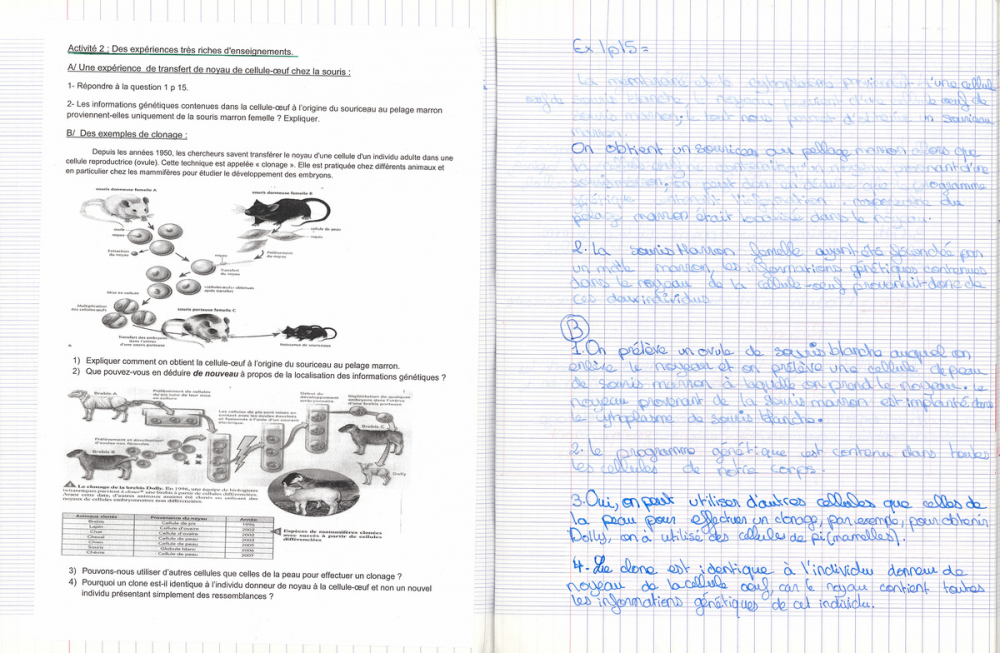 Activité 2 : Des expériences très riches d'enseignements.
A/ Une expérience de transfert de noyau de cellule-œuf chez la souris :
1- Répondre à la question 1 p 15.
2- Les informations génétiques contenues dans la cellule-œuf à l'origine du souriceau au pelage marron
proviennent-elles uniquement de la souris marron femelle ? Expliquer.
B/ Des exemples de clonage :
Depuis les années 1950, les chercheurs savent transférer le noyau d'une cellule d'un individu adulte dans une
cellule reproductrice (ovule). Cette technique est appelée « clonage ». Elle est pratiquée chez différents animaux et
en particulier chez les mammifères pour étudier le développement des embryons.
souris donneuse femelle A
souris donneuse femelle B
ovule
noyau
cellule de peau
noyau
Extraction
du noyau
Prélèvement
du noyau
noyau
Transfert
du noyau
Mise en culture
cellules-œufs obtenues
après transfert
Multiplication
des cellules œufs
souris porteuse femelle C
Transfert des embryons
dans l'utérus
d'une souris porteuse
Naissance du souriceau
1) Expliquer comment on obtient la cellule-œuf à l'origine du souriceau au pelage marron.
2) Que pouvez-vous en déduire de nouveau à propos de la localisation des informations génétiques ?
Brebis A
Prélèvement de cellules
de pis puis de leur mise
en culture
Les cellules de pis sont mises en
contact avec les ovules énucléés
et fusionnés à l'aide d'un courant
électrique.
Début du
développement
embryonnaire
Implantation de quelques
embryons dans l'utérus
d'une brebis porteuse
Brebis C
Prélèvement et énucléation
d'ovules non fécondés
Brebis B
Dolly
Le clonage de la brebis Dolly. En 1996, une équipe de biologistes
Espèces de mammifères clonées
avec succès à partir de cellules
différenciées
Animaux clonés Provenance du noyau Année
Brebis Cellule de pis 1996
Lapin Cellule d'ovaire 2002
Chat Cellule d'ovaire
Cheval Cellule de peau
Chien Cellule de peau 2005
Souris Globule blanc 2006
Chèvre Cellule de peau 2007
3) Pouvons-nous utiliser d'autres cellules que celles de la peau pour effectuer un clonage ?
4) Pourquoi un clone est-il identique à l'individu donneur de noyau à la cellule-œuf et non un nouvel
individu présentant simplement des ressemblances ?
Ex 1p15 =
La membrane et le cytoplasme d'une cellule
œuf de souris blanche, le noyau
souris marron, le tout nous permet d'obtenir un souriceau
marron.
On obtient un souriceau au pellage marron alors que
programme
génétique
pelage marron était localisée dans le noyau.
2. La souris Marron femelle ayant été fécondée par
un mâle marron, les informations génétiques contenues
dans le noyau de la cellule-œuf provenait donc de
ces deux individus
B
1. On prélève un ovule de souris blanche auquel on
enlève le noyau et on prélève une cellule de peau
de souris marron à laquelle on prend le noyau. Le
noyau provenant de la souris marron est implanté dans
le cytoplasme de souris blanche.
2. le programme génétique est contenu dans toutes
les cellules de notre corps.
3. Oui, on peut utiliser d'autres cellules que celles de
la peau pour effectuer un clonage, par exemple, pour obtenir
Dolly, on a utilisé des cellule de pi (mamelles).
4. Le clone est identique à l'individu donneur de
noyau de la cellule œuf, car le noyau contient toutes
les informations génétiques de cet individu.